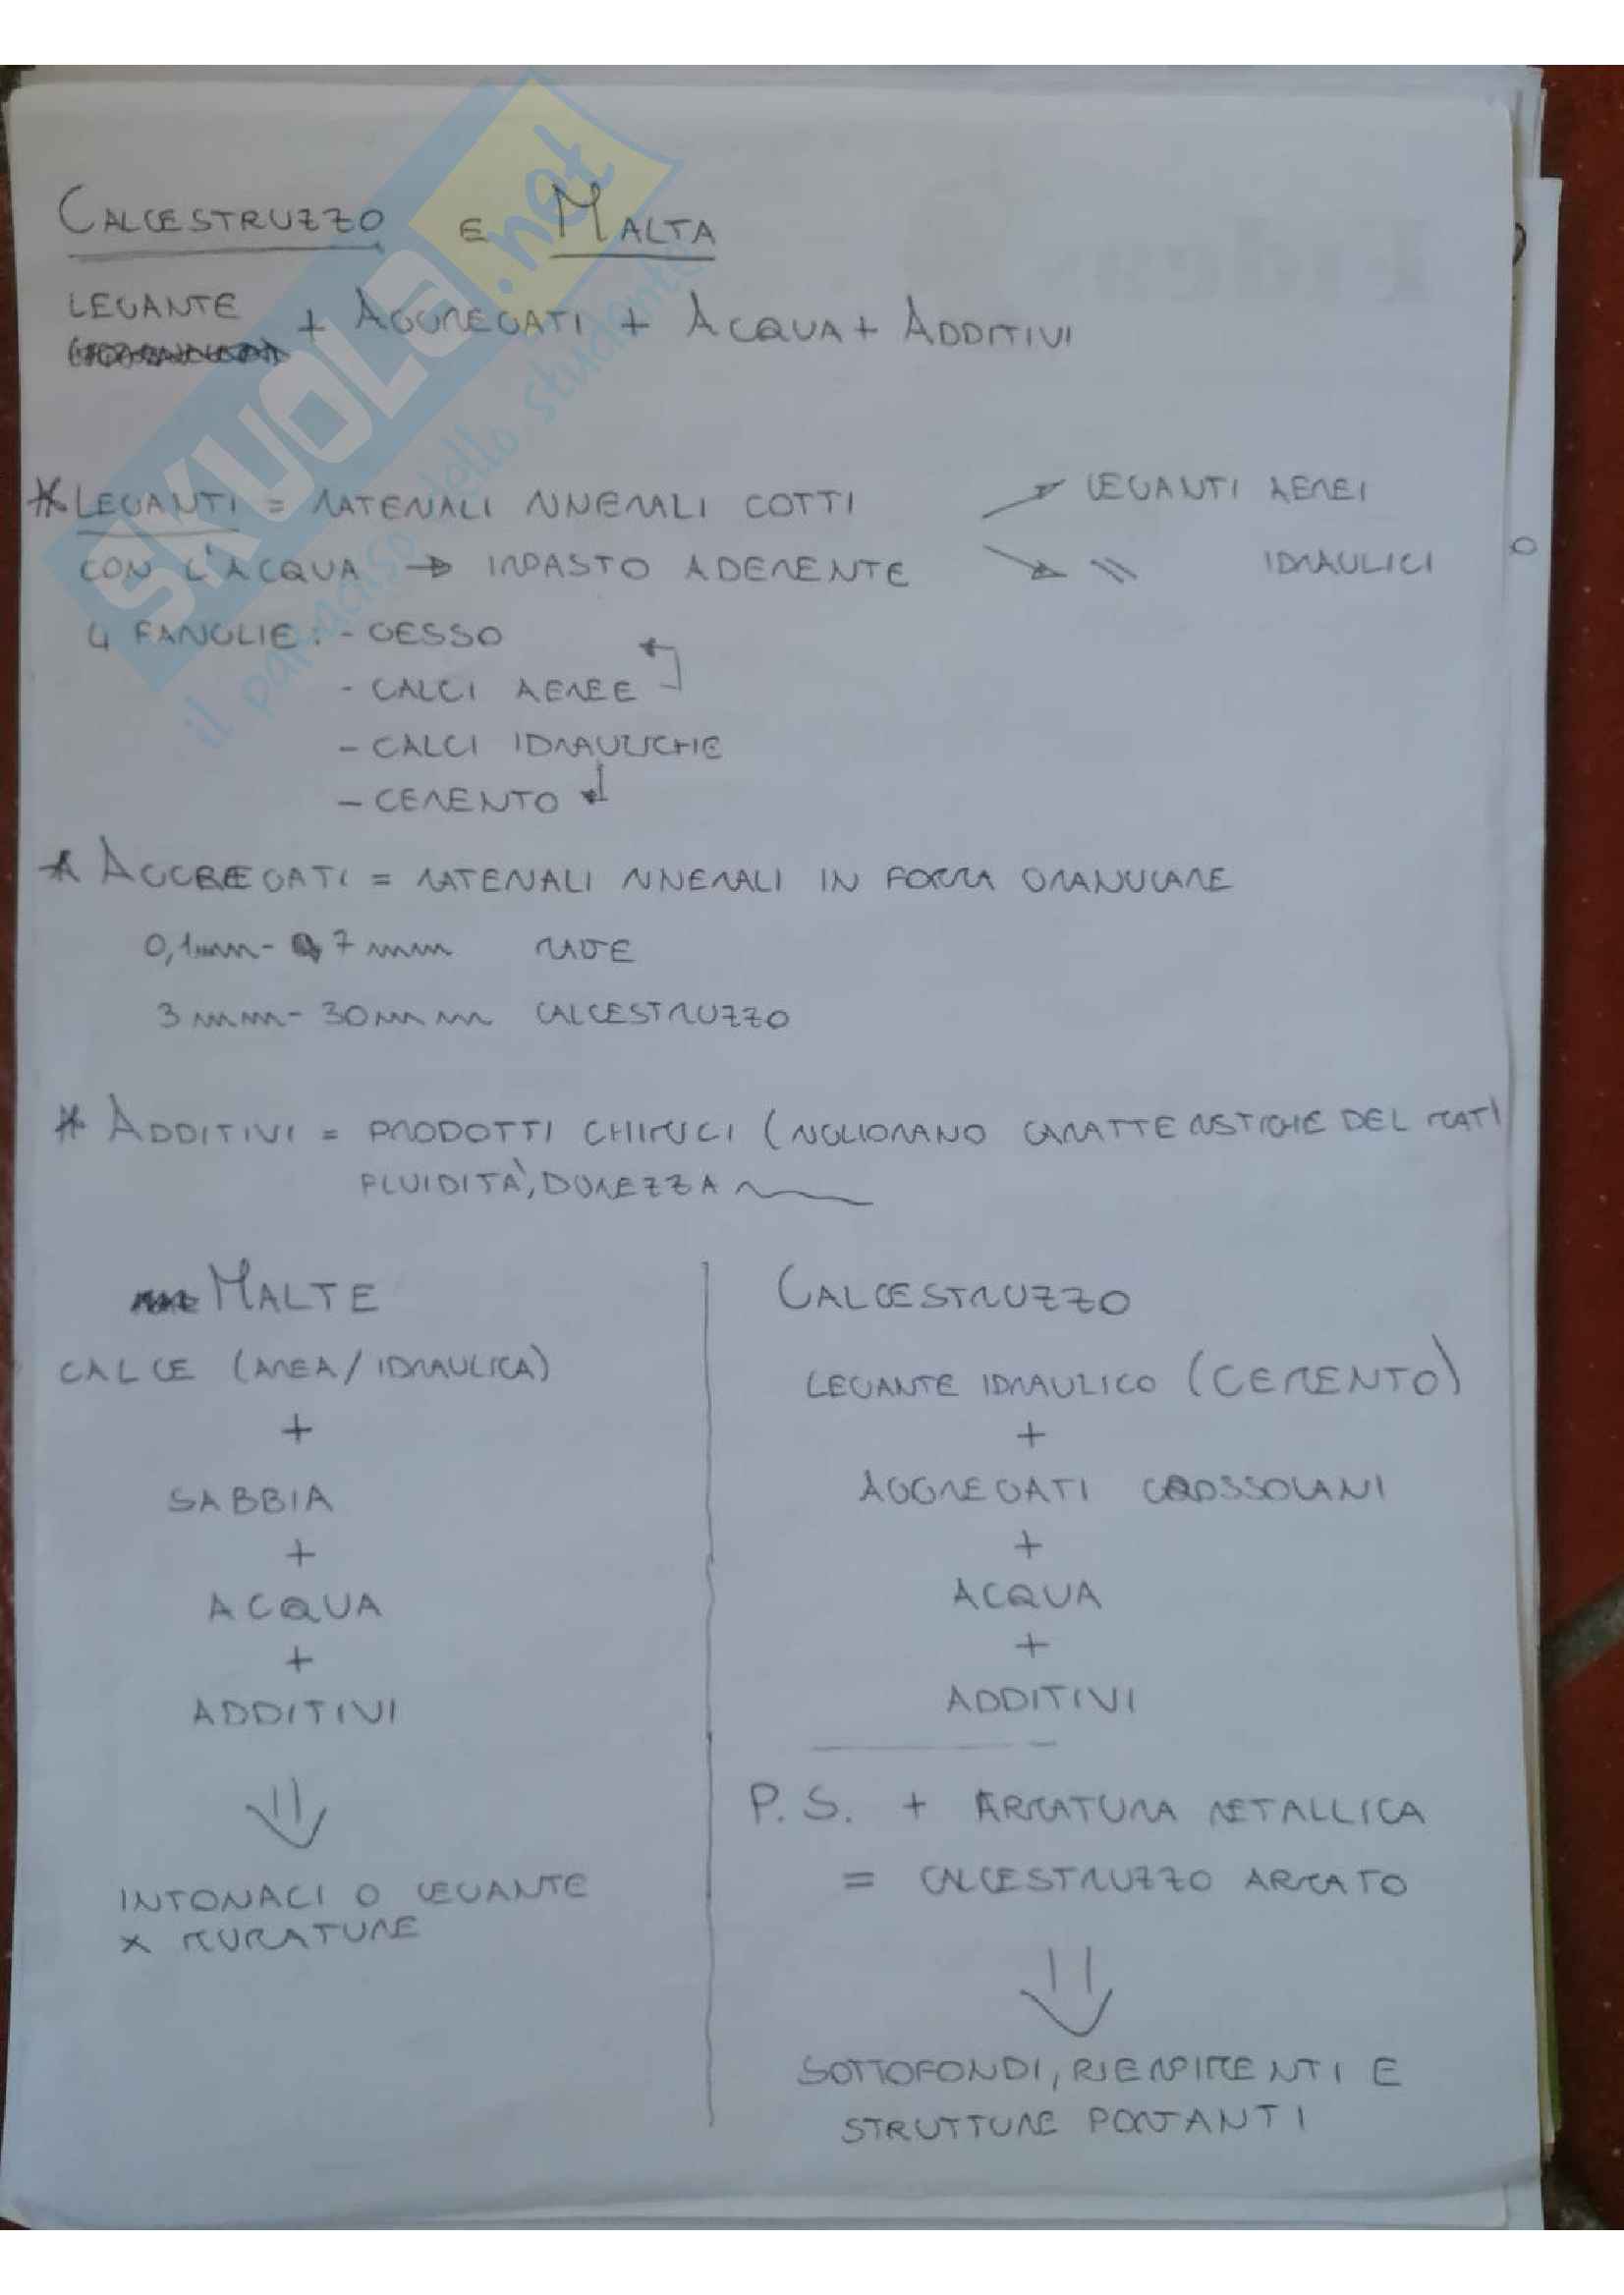 CALCESTRUZZO E MALTA
LEGANTE + AGGREGATI + ACQUA + ADDITIVI
* LEGANTI = MATERIALI MINERALI COTTI → LEGANTI AEREI
CON L'ACQUA → IMPASTO ADERENTE → \\ IDRAULICI
4 FAMIGLIE: - GESSO
- CALCI AEREE
- CALCI IDRAULICHE
- CEMENTO
* AGGREGATI = MATERIALI MINERALI IN FORMA GRANULARE
0,1mm - 7mm
3mm - 30mm CALCESTRUZZO
* ADDITIVI = PRODOTTI CHIMICI (MIGLIORANO CARATTERISTICHE DEL MAT)
FLUIDITÀ, DUREZZA
MALTE
CALCE (AREA/IDRAULICA)
+
SABBIA
+
ACQUA
+
ADDITIVI
INTONACI O LEGANTE
X MURATURE
CALCESTRUZZO
LEGANTE IDRAULICO (CEMENTO)
+
AGGREGATI GROSSOLANI
+
ACQUA
+
ADDITIVI
P.S. + ARMATURA METALLICA
= CALCESTRUZZO ARMATO
SOTTOFONDI, RIEMPIMENTI E
STRUTTURE PORTANTI
SKUOLA.net
il paradiso dello studente